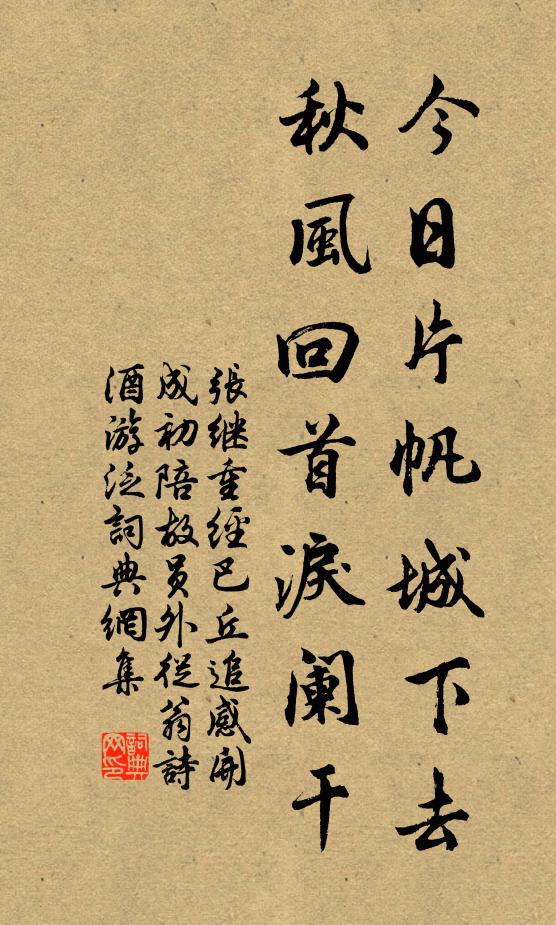 今日片帆城下去
秋風回首淚阑干
張继重經巴丘追感開
成初陪故員外從翁詩
酒游泛詞典網集
詞典
网印